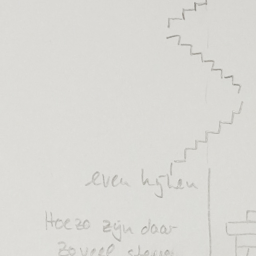 even kijken
Hoezo zijn daar
zoveel